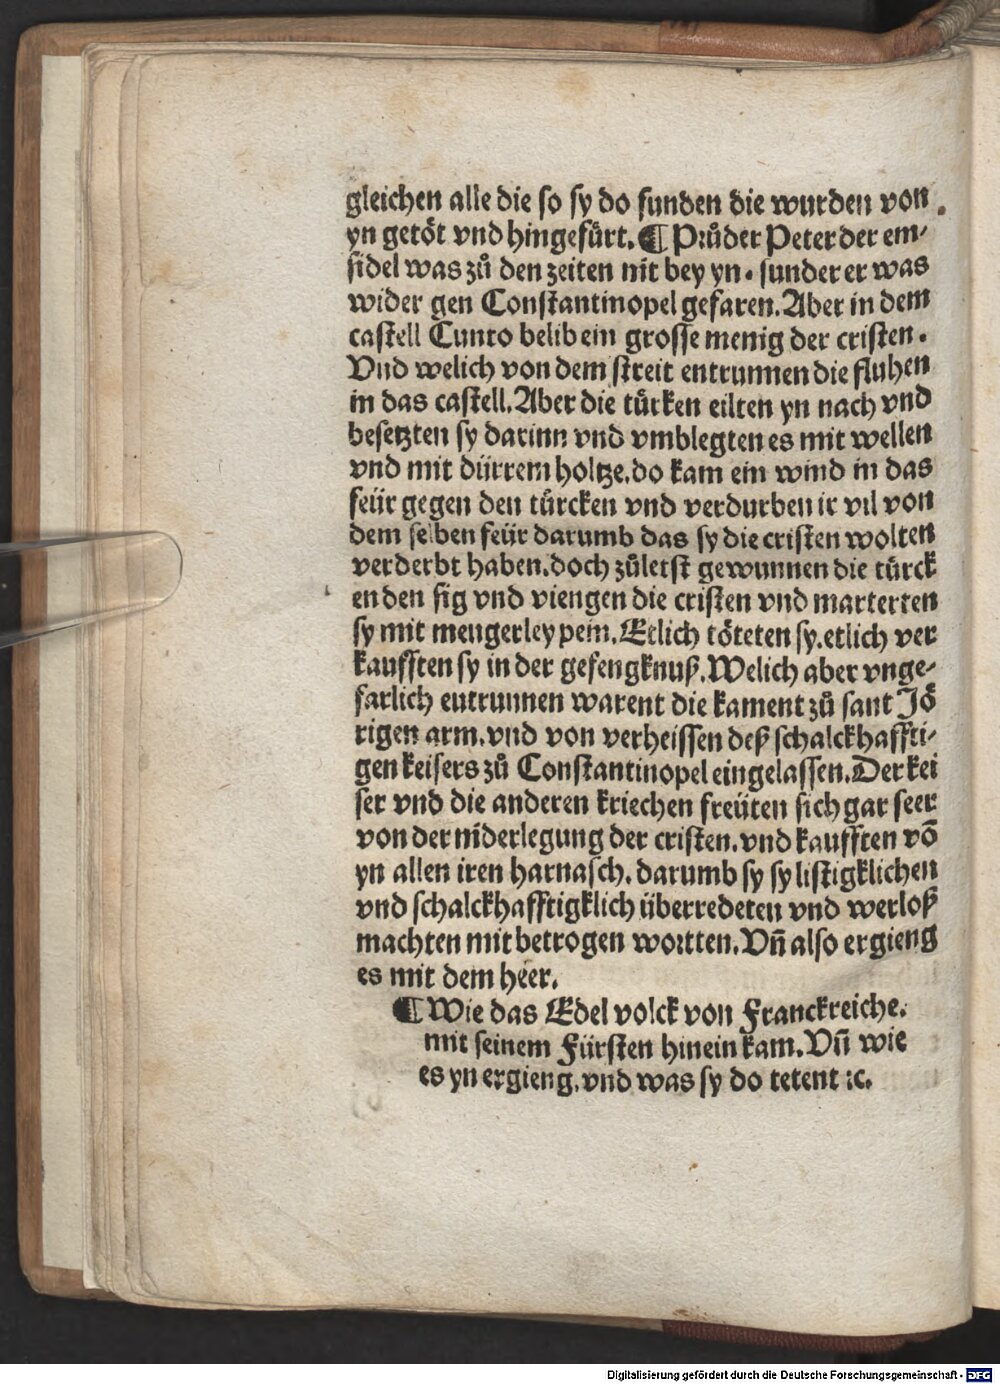 gleichen alle die so sy do funden die wurden von
yn getöt vnd hingefürt. ¶ Pꝛůder Peter der em⸗
sidel was zů den zeiten nit bey yn. sunder er was
wider gen Constantinopel gefaren. Aber in dem
castell Cunto belib ein grosse menig der cristen.
Vnd welich von dem streit entrunnen die fluhen
in das castell. Aber die türken eilten yn nach vnd
besetzten sy darinn vnd vmblegten es mit wellen
vnd mit dürrem holtze. do kam ein wind in das
feür gegen den türcken vnd verdurben ir vil von
dem selben feür darumb das sy die cristen wolten
verderbt haben. doch zůletst gewunnen die türck
en den sig vnd viengen die cristen vnd marterten
sy mit mengerley pein. Etlich töteten sy. etlich ver
kaufften sy in der gefengknuß. Welich aber vnge⸗
farlich entrunnen warent die kament zů sant Jö
rigen arm. vnd von verheissen deß schalckhaffti⸗
gen keisers zů Constantinopel eingelassen. Der kei
ser vnd die anderen kriechen freüten sich gar seer
von der niderlegung der cristen. vnd kaufften võ
yn allen iren harnasch. darumb sy sy listigklichen
vnd schalckhafftigklich überredeten vnd werloß
machten mit betrogen woꝛtten. Vn̄ also ergieng
es mit dem heer.
¶ Wie das Edel volck von Franckreiche.
mit seinem Fürsten hinein kam. Vn̄ wie
es yn ergieng. vnd was sy do tetent ꝛc.
Digitalisierung gefördert durch die Deutsche Forschungsgemeinschaft - DFG